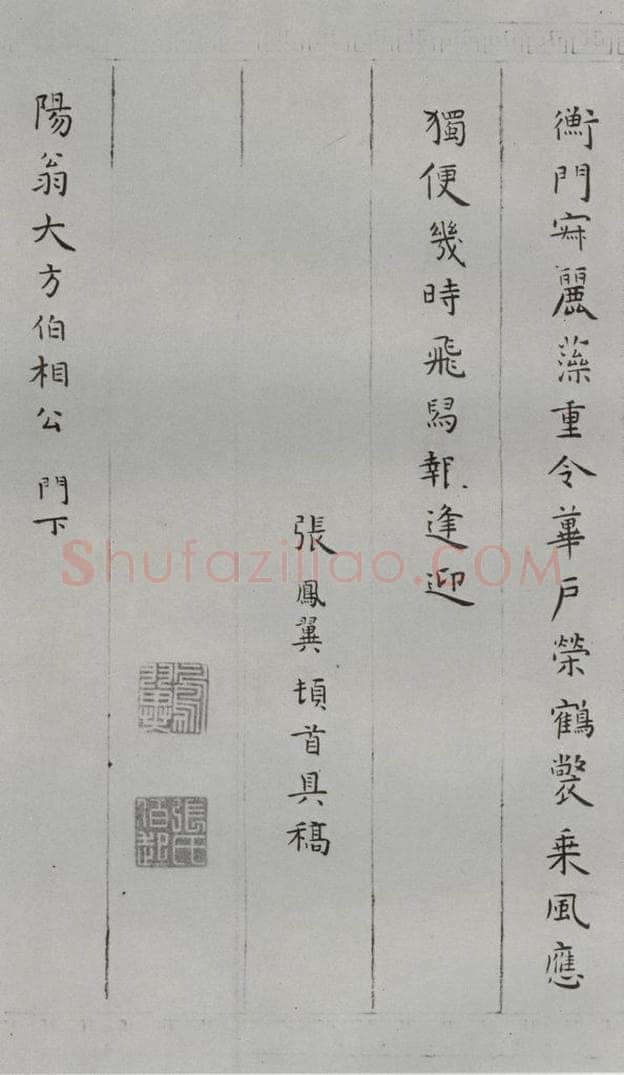 衡門寂麗藻重令蓽戶榮鶴氅乘風應
獨便幾時飛舄報逢迎
張鳳翼頓首具稿
鳳翼
陽翁大方伯相公 門下
Shufaziliao.COM